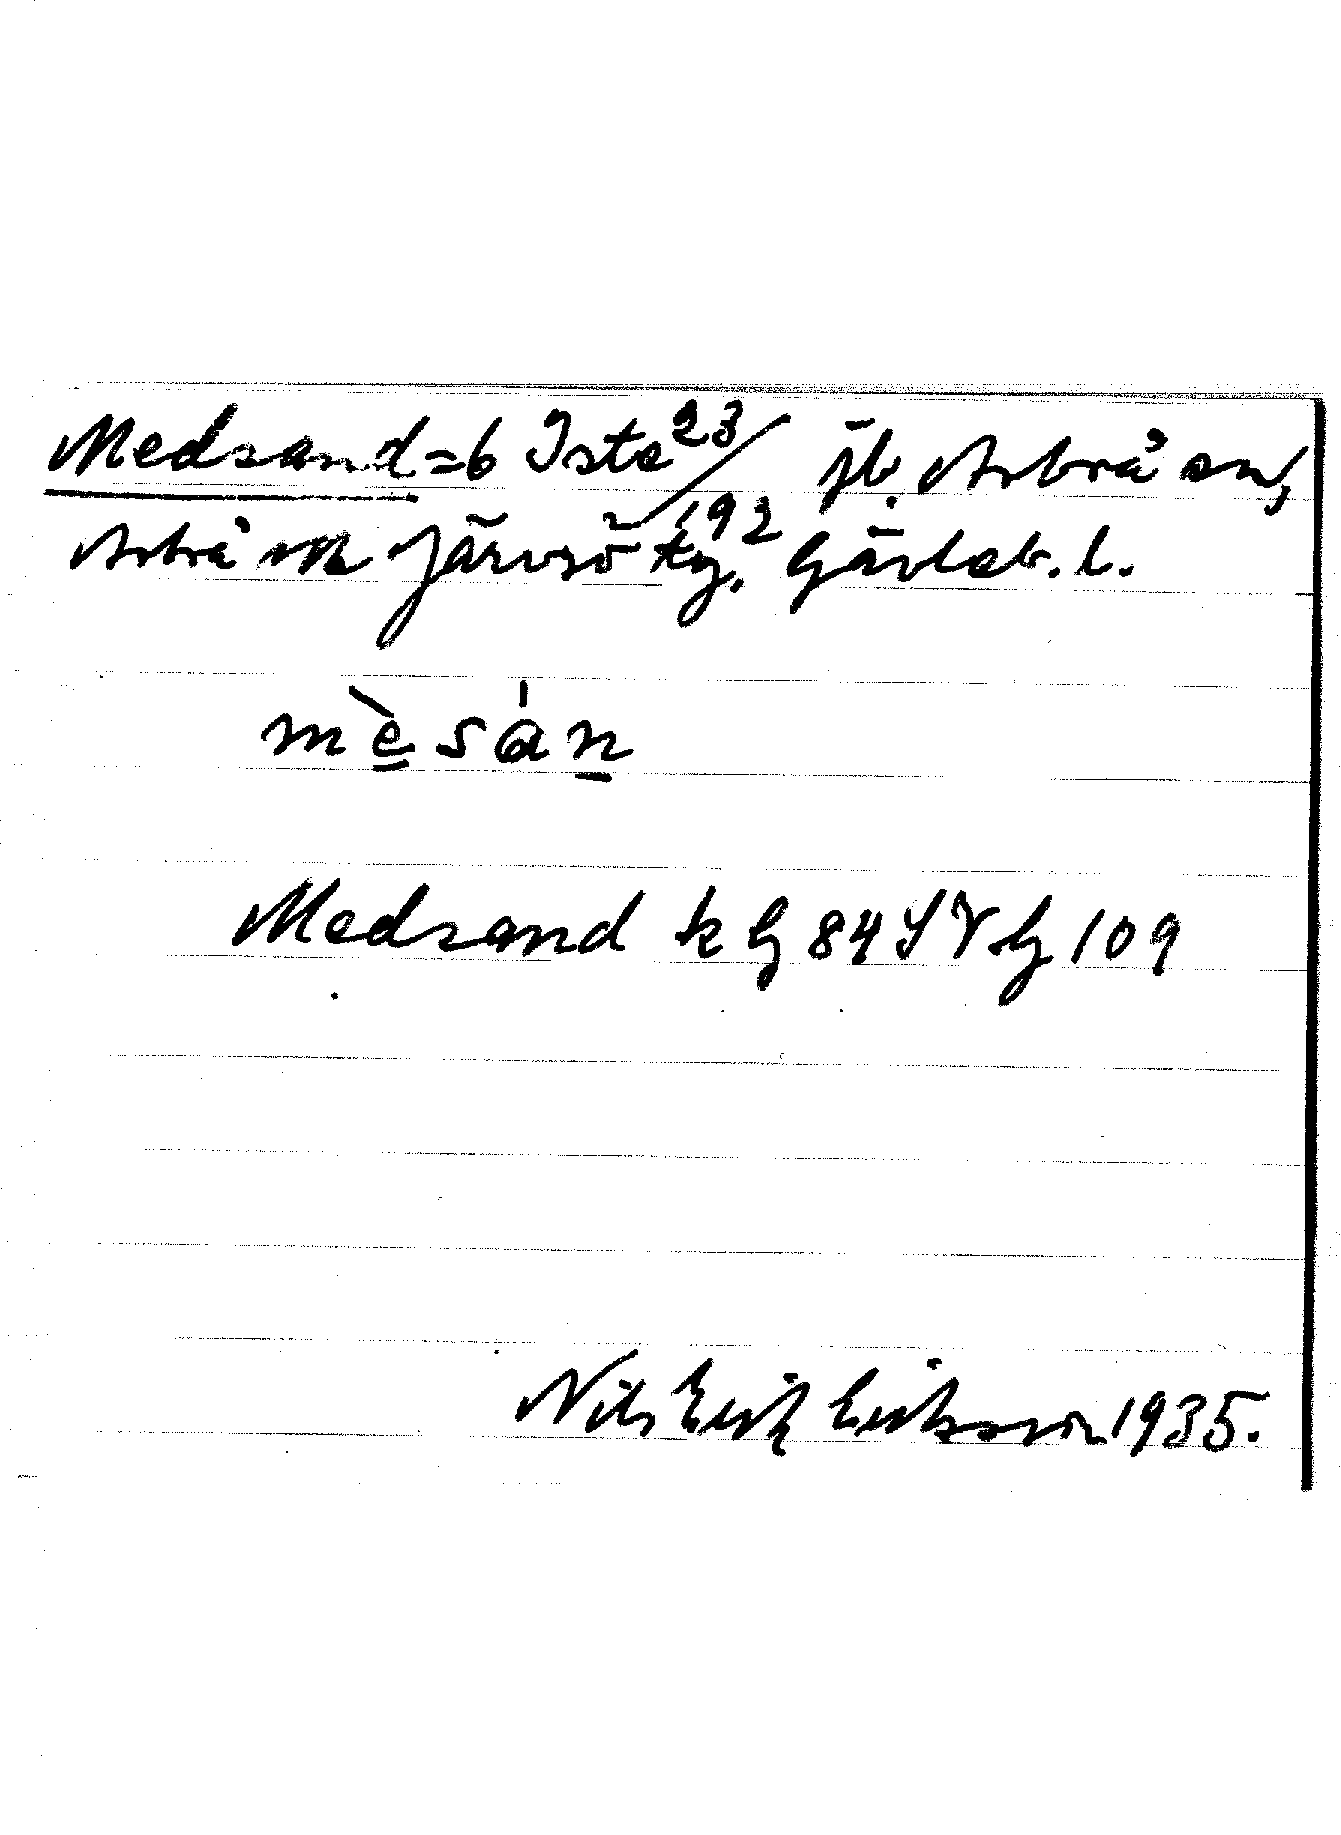 Medsand = b Iste 23/192 jb. Arbrå sn,
Arbrå o Järvsö tg. Gävleb. l.
mèsán
Medsand k G 84 SV G 109
Nils Erik Eriksson 1935.